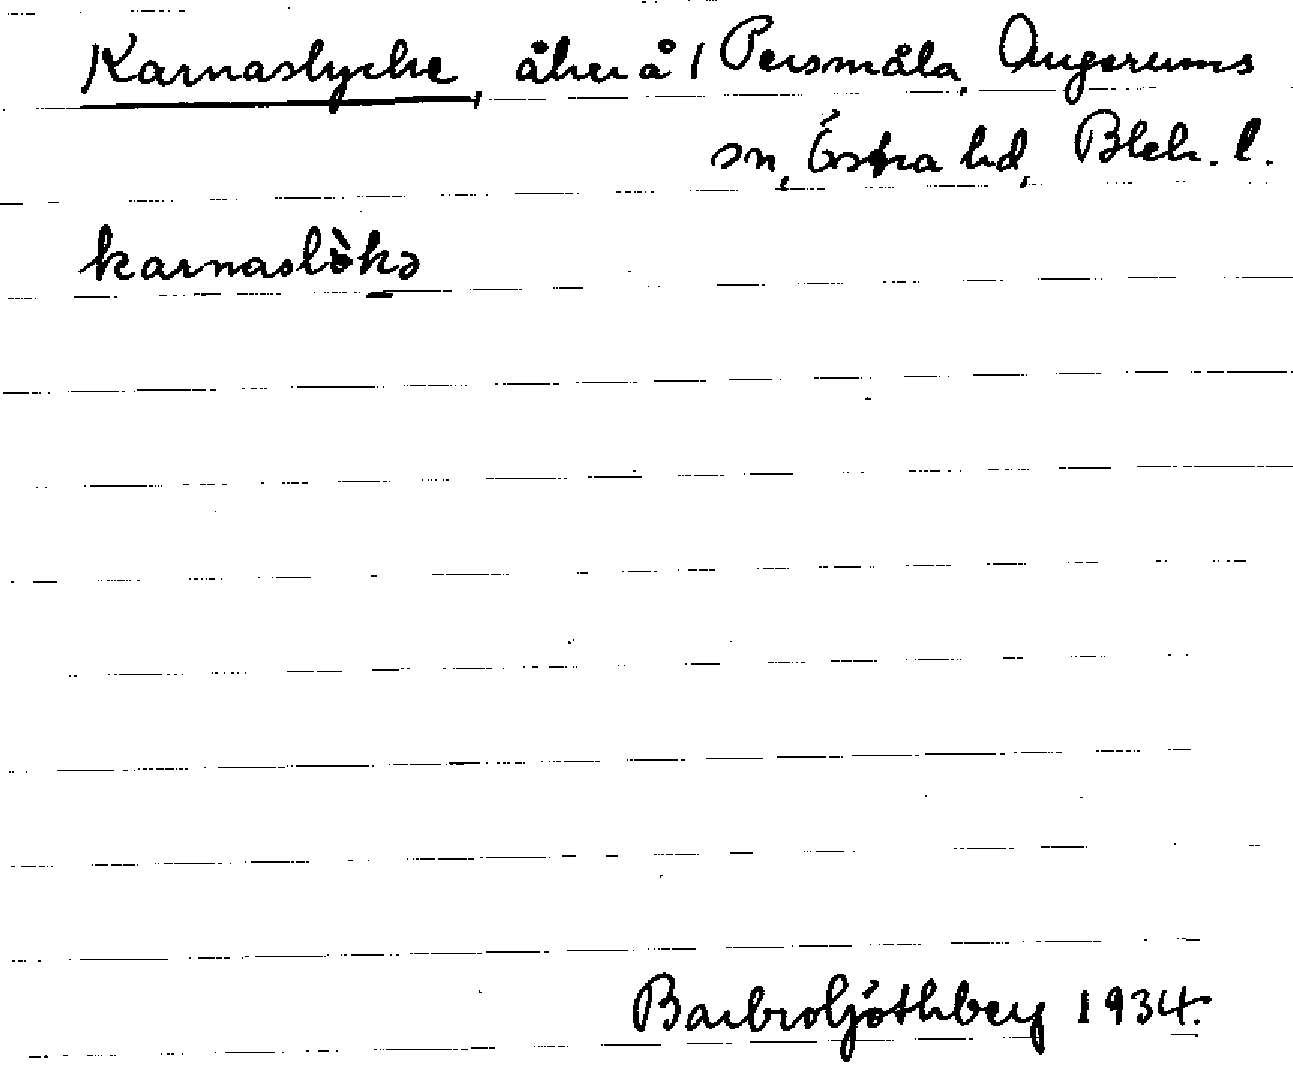 Karnaslycke, åker å 1 Persmåla, Augerums
sn, Östra hd, Blek. l.
karnaslòkə
Barbro Göthberg 1934.